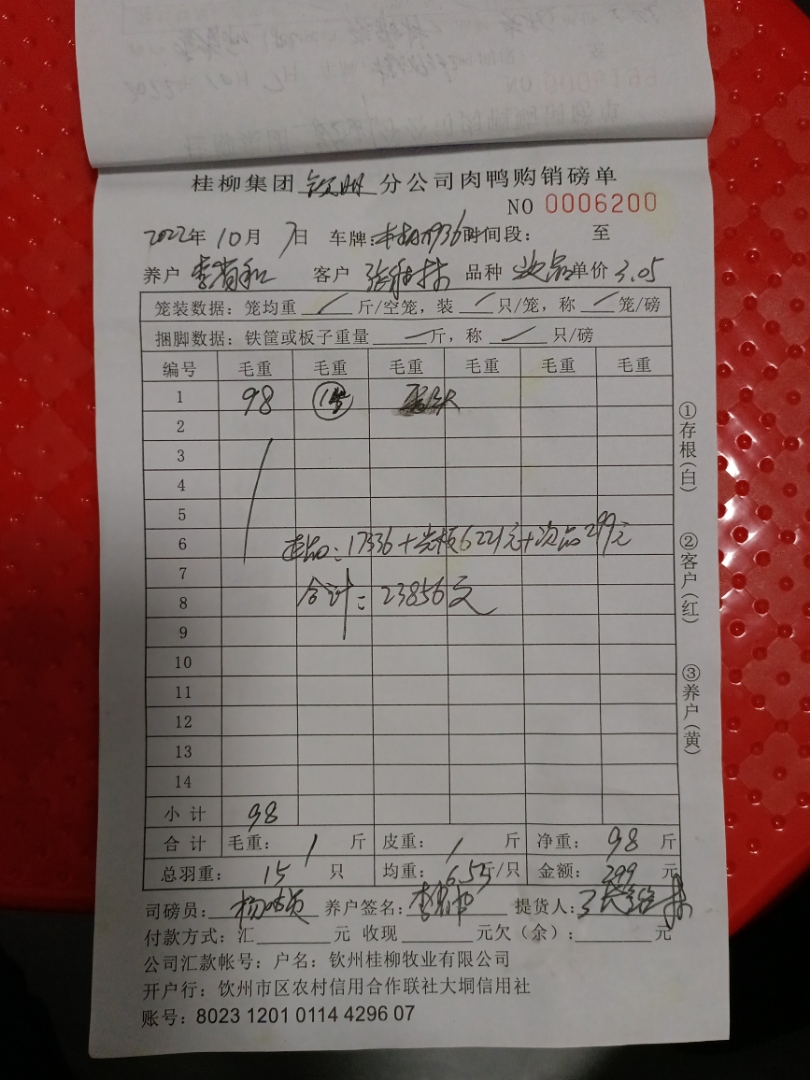 桂柳集团 钦州 分公司肉鸭购销磅单
NO 0006200
2022年 10月 7日 车牌: 时间段: 至
养户 客户 品种 次品 单价 3.05
笼装数据: 笼均重 / 斤/空笼, 装 / 只/笼, 称 / 笼/磅
捆脚数据: 铁筐或板子重量 / 斤, 称 / 只/磅
编号 毛重 毛重 毛重 毛重 毛重 毛重
1 98
2
3
4
5
6 17336+光板6221元+次品299元
7
8 合计=23856元
9
10
11
12
13
14
小计 98
合计 毛重: / 斤 皮重: / 斤 净重: 98 斤
总羽重: 15 只 均重: 6.5 斤/只 金额: 299 元
司磅员: 养户签名: 提货人:
付款方式: 汇 元 收现 元欠(余): 元
公司汇款帐号: 户名: 钦州桂柳牧业有限公司
开户行: 钦州市区农村信用合作联社大垌信用社
账号: 8023 1201 0114 4296 07
①存根(白)
②客户(红)
③养户(黄)